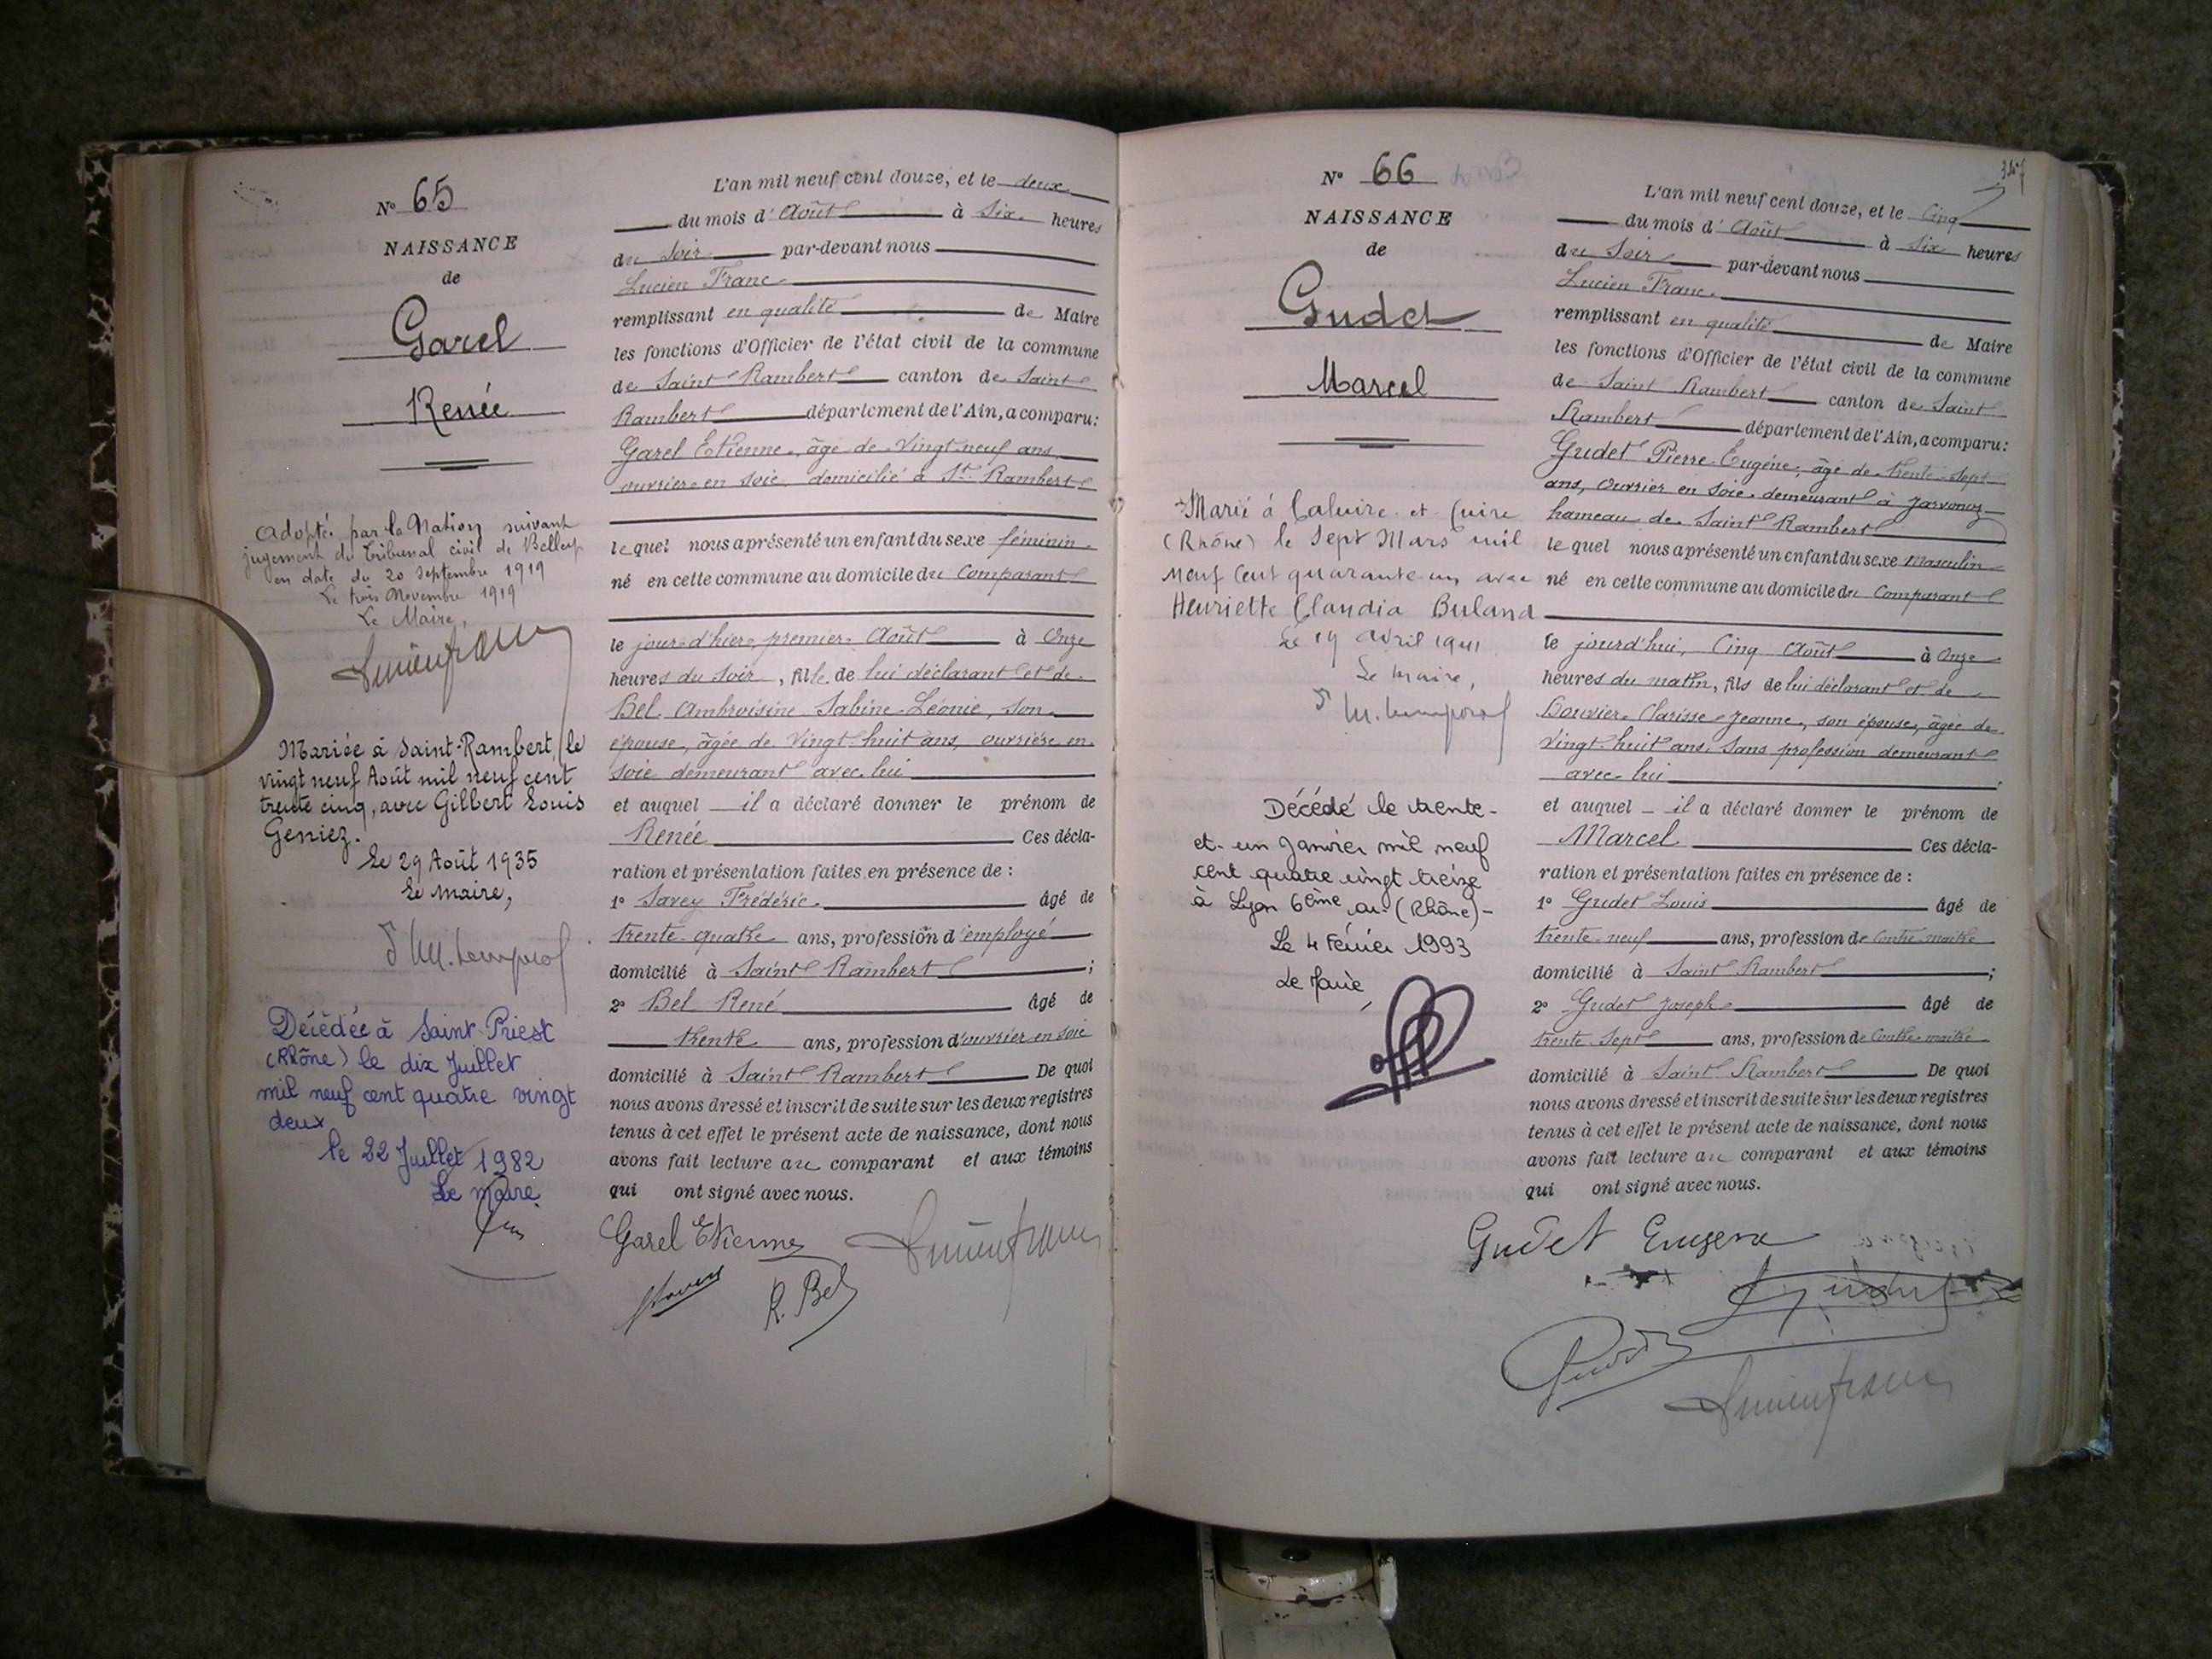 N° 65
NAISSANCE
de
Garel
Renée
Adopté par la Nation suivant
jugement du Tribunal civil de Belley
en date du 20 Septembre 1919
Le trois Novembre 1919
Le Maire,
Lucien Franc
Mariée à Saint-Rambert, le
vingt neuf Août mil neuf cent
trente cinq, avec Gilbert Louis
Geniez.
Le 29 Août 1935
Le maire,
Décédée à Saint-Priest
(Rhône) le dix Juillet
mil neuf cent quatre vingt
deux
le 22 Juillet 1982
Le maire
L'an mil neuf cent douze, et le deux
du mois d'Août à Six heures
du Soir par-devant nous
Lucien Franc
remplissant en qualité de Maire
les fonctions d'Officier de l'état civil de la commune
de Saint Rambert canton de Saint
Rambert département de l'Ain, a comparu:
Garel Etienne, âgé de Vingt-neuf ans
ouvrier en soie, domicilié à St Rambert
lequel nous a présenté un enfant du sexe féminin
né en cette commune au domicile du Comparant
le jour d'hier, premier Août à Onze
heures du Soir, fille de lui déclarant et de
Bel Ambroisine Sabine Léonie, son
épouse, âgée de Vingt-huit ans, ouvrière en
soie demeurant avec lui
et auquel il a déclaré donner le prénom de
Renée Ces décla-
ration et présentation faites en présence de :
1° Savey Frédéric âgé de
trente-quatre ans, profession d'employé
domicilié à Saint Rambert ;
2° Bel René âgé de
trente ans, profession d'ouvrier en soie
domicilié à Saint Rambert De quoi
nous avons dressé et inscrit de suite sur les deux registres
tenus à cet effet le présent acte de naissance, dont nous
avons fait lecture au comparant et aux témoins
qui ont signé avec nous.
Garel Etienne Lucien Franc
Savey R. Bel
N° 66
NAISSANCE
de
Gudet
Marcel
Marié à Caluire-et-Cuire
(Rhône) le Sept Mars mil
neuf cent quarante-un avec
Henriette Claudia Buland
Le 19 Avril 1941
Le Maire,
Décédé le trente-
et-un Janvier mil neuf
cent quatre vingt treize
à Lyon 6ème ar- (Rhône)-
Le 4 Février 1993
Le Maire,
L'an mil neuf cent douze, et le Cinq
du mois d'Août à Six heures
du Soir par-devant nous
Lucien Franc
remplissant en qualité de Maire
les fonctions d'Officier de l'état civil de la commune
de Saint Rambert canton de Saint
Rambert département de l'Ain, a comparu:
Gudet Pierre Eugène, âgé de trente-sept
ans, Ouvrier en Soie demeurant à Javornoz
hameau de Saint Rambert
lequel nous a présenté un enfant du sexe Masculin
né en cette commune au domicile du Comparant
le jourd'hui, Cinq Août à Onze
heures du matin, fils de lui déclarant et de
Bouvier Clarisse Jeanne, son épouse, âgée de
Vingt-huit ans, Sans profession demeurant
avec lui
et auquel il a déclaré donner le prénom de
Marcel Ces décla-
ration et présentation faites en présence de :
1° Gudet Louis âgé de
trente-neuf ans, profession de Contre-maître
domicilié à Saint Rambert ;
2° Gudet Joseph âgé de
trente-Sept ans, profession de Contre-maître
domicilié à Saint Rambert De quoi
nous avons dressé et inscrit de suite sur les deux registres
tenus à cet effet le présent acte de naissance, dont nous
avons fait lecture au comparant et aux témoins
qui ont signé avec nous.
Gudet Eugene
Gudet
Gudet
Lucien Franc